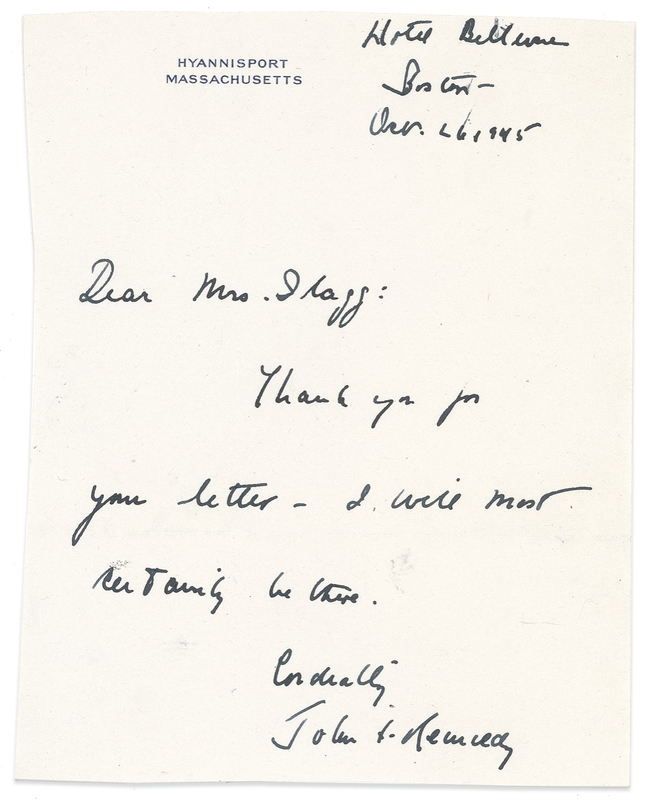 HYANNISPORT
MASSACHUSETTS
Hotel Bellevue
Boston –
26, 1945
Dear Mrs. Flagg:
Thank you for
your letter – I will most
certainly be there.
Cordially
John F. Kennedy